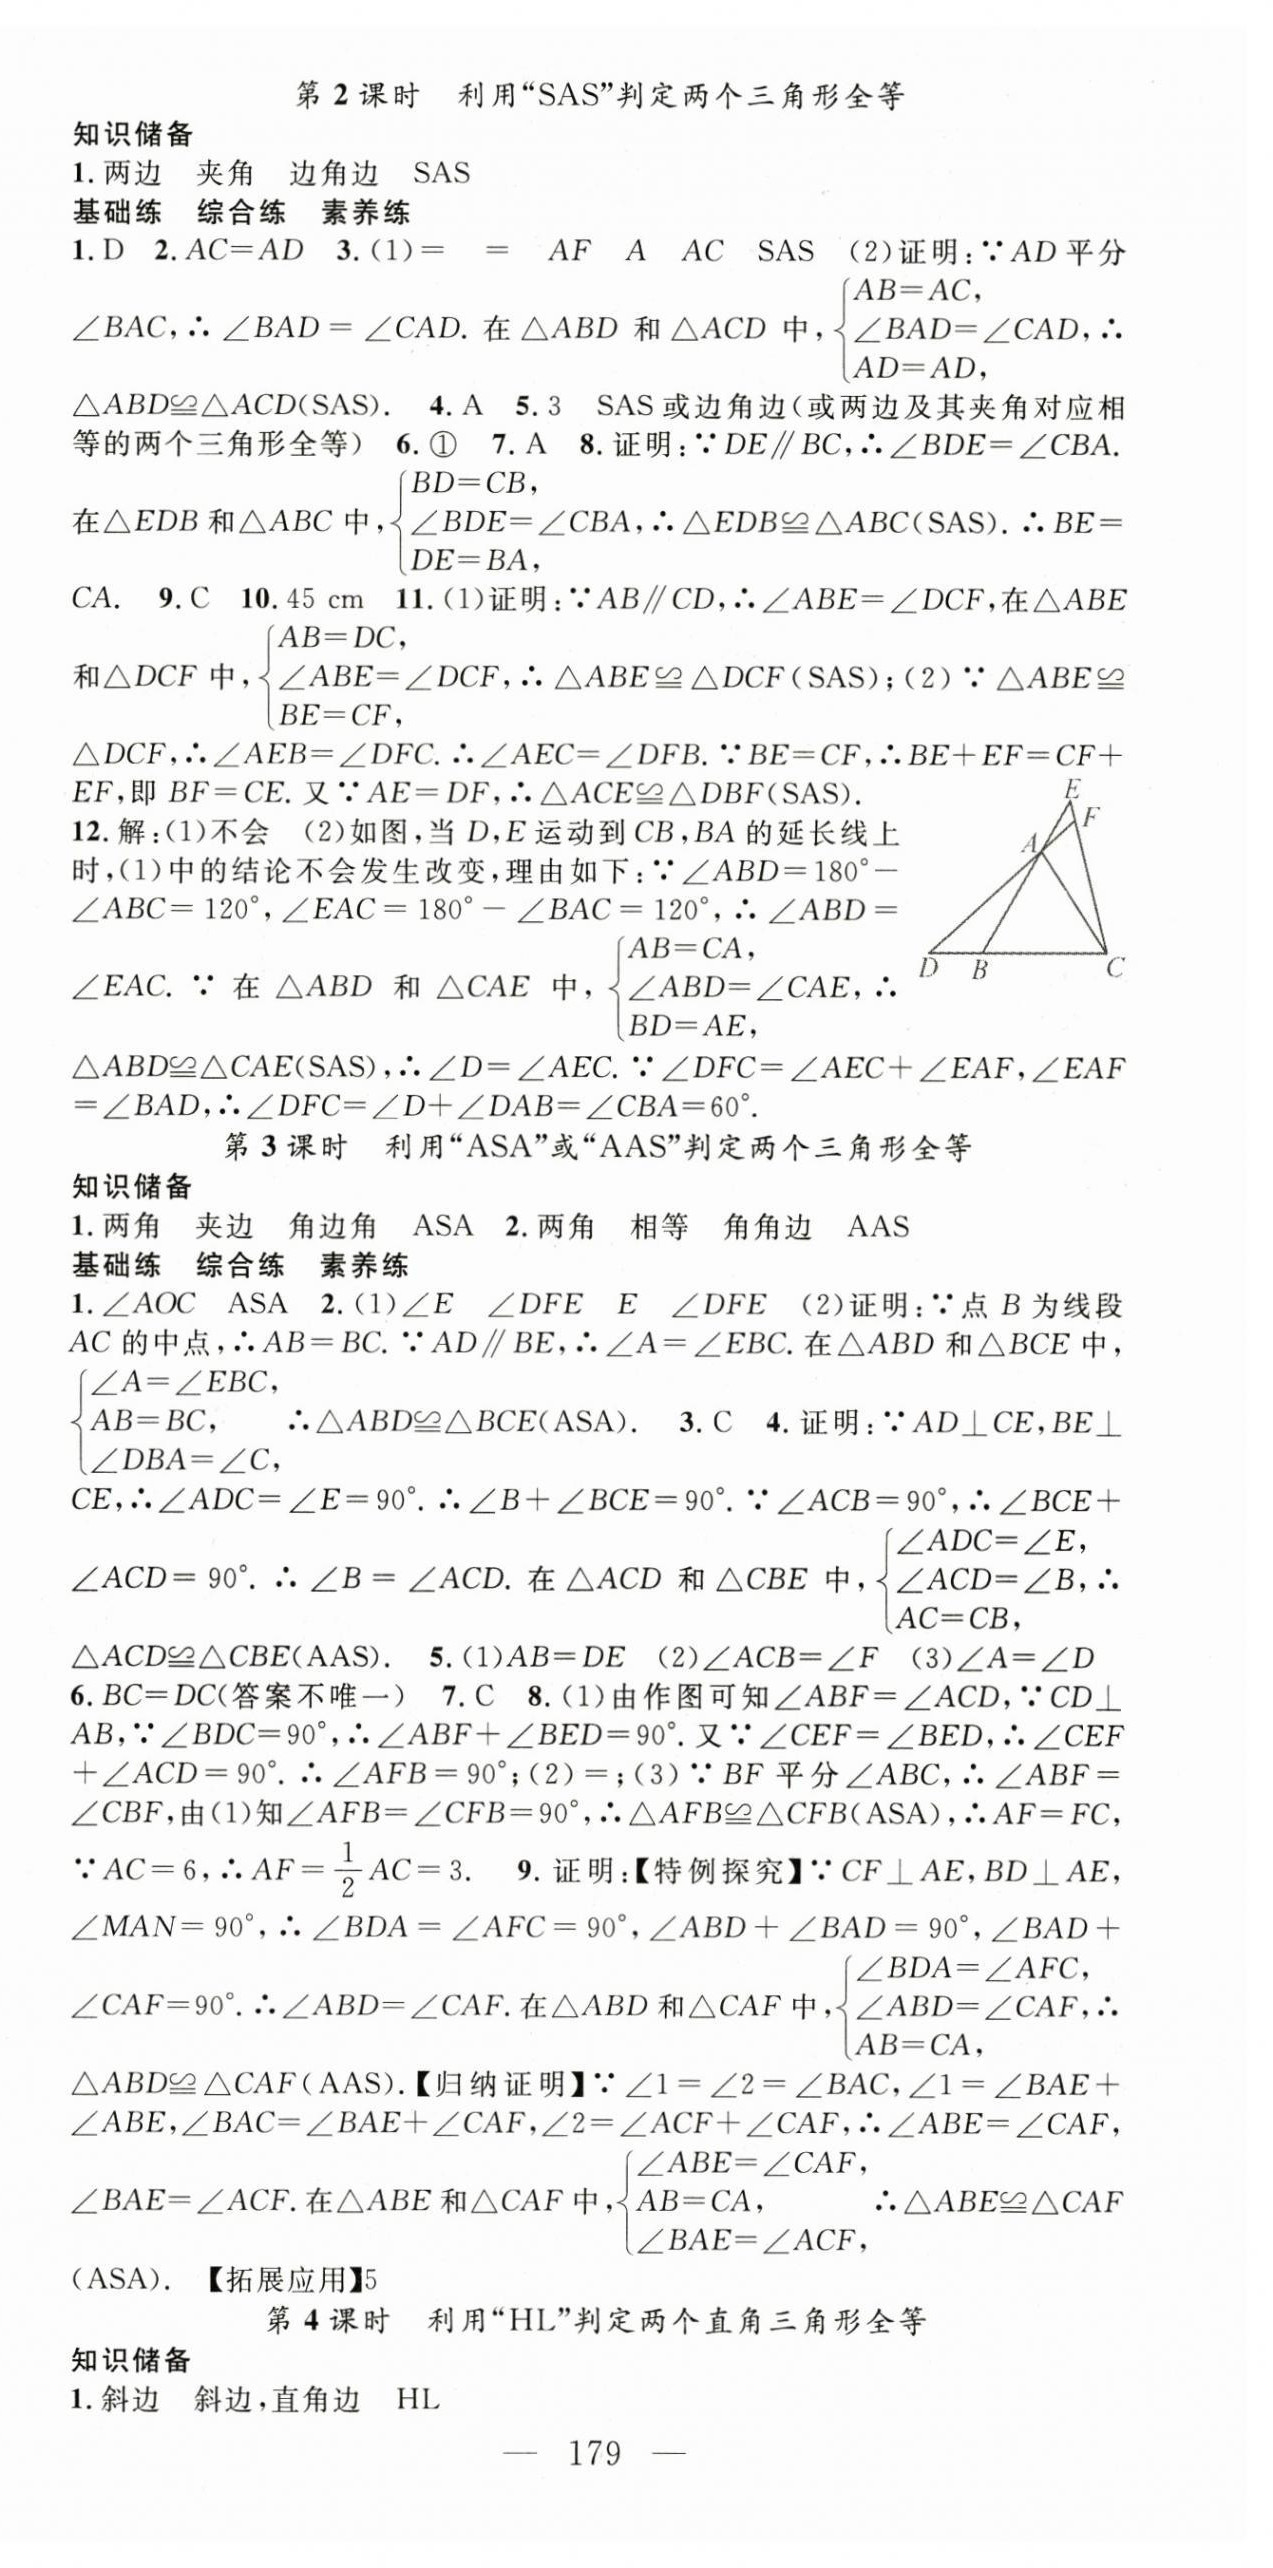 第2课时 利用“SAS”判定两个三角形全等
知识储备
1.两边 夹角 边角边 SAS
基础练 综合练 素养练
1.D 2.AC=AD 3.(1)= = AF A AC SAS (2)证明:∵AD平分
AB=AC,
∠BAC,∴∠BAD=∠CAD.在△ABD和△ACD中,{∠BAD=∠CAD,∴
AD=AD,
△ABD≌△ACD(SAS). 4.A 5.3 SAS或边角边(或两边及其夹角对应相
等的两个三角形全等) 6.① 7.A 8.证明:∵DE∥BC,∴∠BDE=∠CBA.
BD=CB,
在△EDB和△ABC中,{∠BDE=∠CBA,∴△EDB≌△ABC(SAS).∴BE=
DE=BA,
CA. 9.C 10.45 cm 11.(1)证明:∵AB∥CD,∴∠ABE=∠DCF,在△ABE
AB=DC,
和△DCF中,{∠ABE=∠DCF,∴△ABE≌△DCF(SAS);(2)∵△ABE≌
BE=CF,
△DCF,∴∠AEB=∠DFC.∴∠AEC=∠DFB.∵BE=CF,∴BE+EF=CF+
EF,即BF=CE.又∵AE=DF,∴△ACE≌△DBF(SAS).
12.解:(1)不会 (2)如图,当D,E运动到CB,BA的延长线上
时,(1)中的结论不会发生改变,理由如下:∵∠ABD=180°-
∠ABC=120°,∠EAC=180°-∠BAC=120°,∴∠ABD=
AB=CA,
∠EAC.∵在△ABD和△CAE中,{∠ABD=∠CAE,∴
BD=AE,
E
F
A
D B C
△ABD≌△CAE(SAS),∴∠D=∠AEC.∵∠DFC=∠AEC+∠EAF,∠EAF
=∠BAD,∴∠DFC=∠D+∠DAB=∠CBA=60°.
第3课时 利用“ASA”或“AAS”判定两个三角形全等
知识储备
1.两角 夹边 角边角 ASA 2.两角 相等 角角边 AAS
基础练 综合练 素养练
1.∠AOC ASA 2.(1)∠E ∠DFE E ∠DFE (2)证明:∵点B为线段
AC的中点,∴AB=BC.∵AD∥BE,∴∠A=∠EBC.在△ABD和△BCE中,
∠A=∠EBC,
{AB=BC, ∴△ABD≌△BCE(ASA). 3.C 4.证明:∵AD⊥CE,BE⊥
∠DBA=∠C,
CE,∴∠ADC=∠E=90°.∴∠B+∠BCE=90°.∵∠ACB=90°,∴∠BCE+
∠ADC=∠E,
∠ACD=90°.∴∠B=∠ACD.在△ACD和△CBE中,{∠ACD=∠B,∴
AC=CB,
△ACD≌△CBE(AAS). 5.(1)AB=DE (2)∠ACB=∠F (3)∠A=∠D
6.BC=DC(答案不唯一) 7.C 8.(1)由作图可知∠ABF=∠ACD,∵CD⊥
AB,∵∠BDC=90°,∴∠ABF+∠BED=90°.又∵∠CEF=∠BED,∴∠CEF
+∠ACD=90°.∴∠AFB=90°;(2)=;(3)∵BF平分∠ABC,∴∠ABF=
∠CBF,由(1)知∠AFB=∠CFB=90°,∴△AFB≌△CFB(ASA),∴AF=FC,
∵AC=6,∴AF=1/2AC=3. 9.证明:【特例探究】∵CF⊥AE,BD⊥AE,
∠MAN=90°,∴∠BDA=∠AFC=90°,∠ABD+∠BAD=90°,∠BAD+
∠BDA=∠AFC,
∠CAF=90°.∴∠ABD=∠CAF.在△ABD和△CAF中,{∠ABD=∠CAF,∴
AB=CA,
△ABD≌△CAF(AAS).【归纳证明】∵∠1=∠2=∠BAC,∠1=∠BAE+
∠ABE,∠BAC=∠BAE+∠CAF,∠2=∠ACF+∠CAF,∴∠ABE=∠CAF,
∠ABE=∠CAF,
∠BAE=∠ACF.在△ABE和△CAF中,{AB=CA, ∴△ABE≌△CAF
∠BAE=∠ACF,
(ASA). 【拓展应用】5
第4课时 利用“HL”判定两个直角三角形全等
知识储备
1.斜边 斜边,直角边 HL
— 179 —